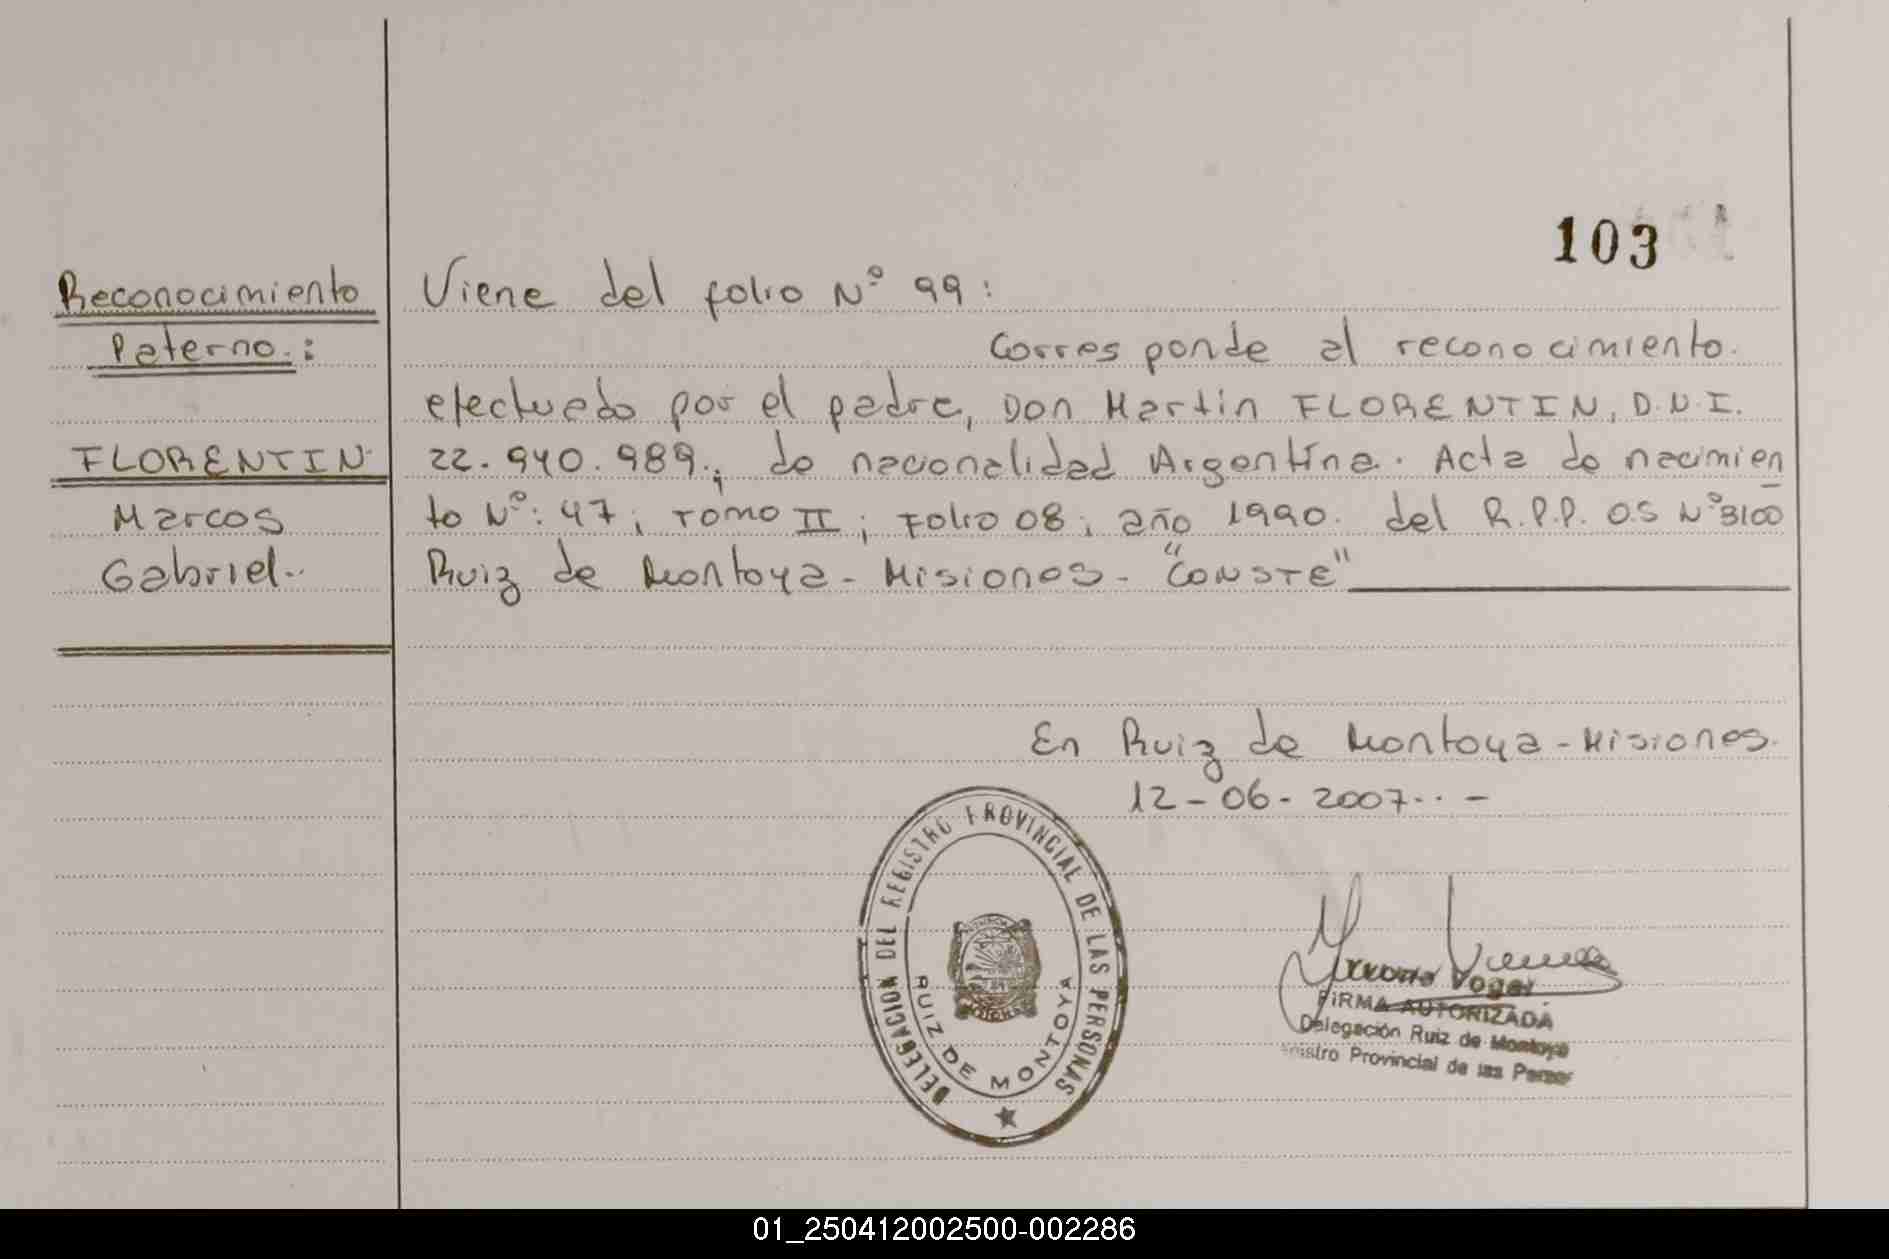 103
Reconocimiento
Paterno.:
FLORENTIN
Marcos
Gabriel..
Viene del folio Nº 99:
Corresponde al reconocimiento.
efectuado por el padre, Don Martin FLORENTIN, D.N.I.
22.940.989.; de nacionalidad Argentina. Acta de nacimien
to Nº: 47; Tomo II; Folio 08; año 1990. del R.P.P. O.S Nº3100
Ruiz de Montoya - Misiones - "CONSTE"
En Ruiz de Montoya - Misiones.
12-06-2007..-
DELEGACION DEL REGISTRO PROVINCIAL DE LAS PERSONAS
RUIZ DE MONTOYA
Vogel
FIRMA AUTORIZADA
Delegación Ruiz de Montoya
Provincial de las
01_250412002500-002286